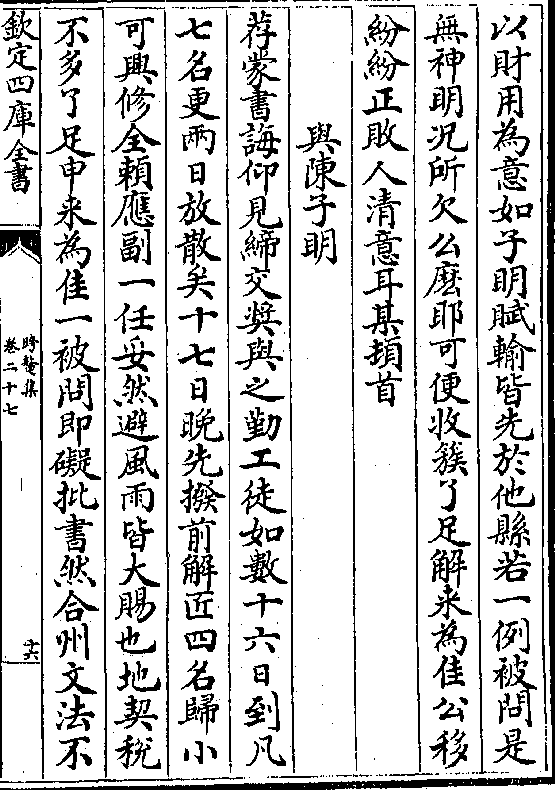 以財用為意如子明賦輸皆先於他縣若一例被問是
無神明况所欠公麽耶可便收簇了足解来為佳公移
紛紛正敗人清意耳某頓首
與陳子明
荐蒙書誨仰見締交奨與之勤工徒如數十六日到凡
七名更兩日放散矣十七日晚先撥前解匠四名歸小
可興修全頼應副一任妥然避風雨皆大賜也地契稅
不多了足申来為佳一被問即礙批書然合州文法不
欽定四庫全書
跨鼇集
卷二十七
十六